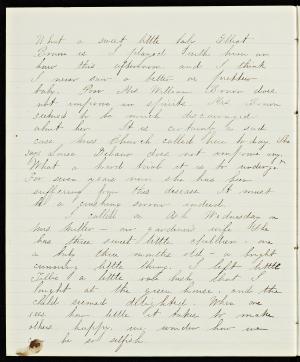 What a sweet little baby Elliot
Brown is. I played with him an
hour this afternoon and I think
I never saw a better or prettier
baby. Poor Mrs William Brown does
not improve in spirits. Mrs Brown
seemed to be much discouraged
about her. It is certainly a sad
case. Mrs Church called here to day. She
says Louisa does not improve any.
What a hard trial it is to undergo.
For seven years now she has been
suffering from this disease. It must
be a crushing sorrow indeed.
I called on Ash Wednesday on
Mrs Miller - our gardener's wife. She
has three sweet little children - one
a baby three months old - a bright
cunning little thing. I left little
a little book that I
bought at the green house, and the
child seemed delighted. When one
sees how little it takes to make
others happy, we wonder how we
be so selfish